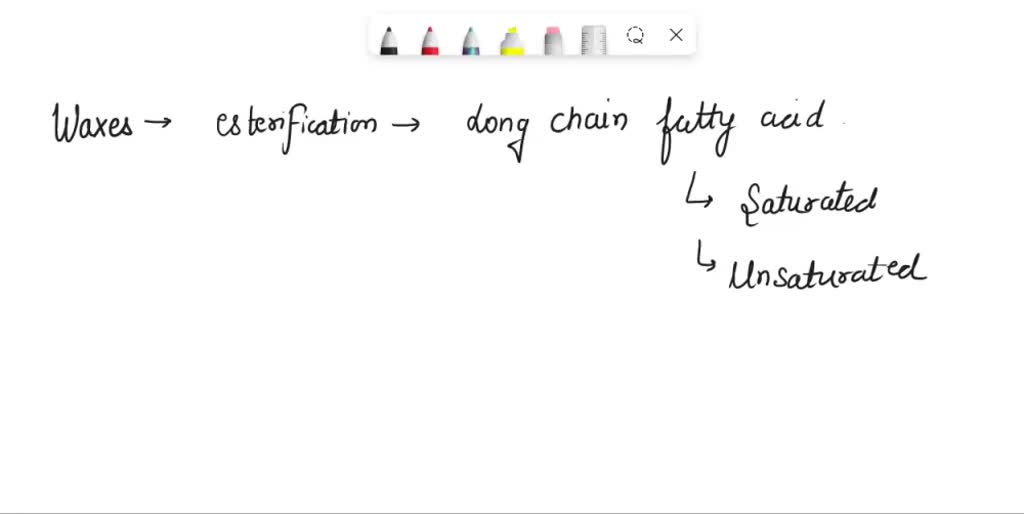 Waxes → esterification → Long chain fatty acid
↳ Saturated
↳ Unsaturated